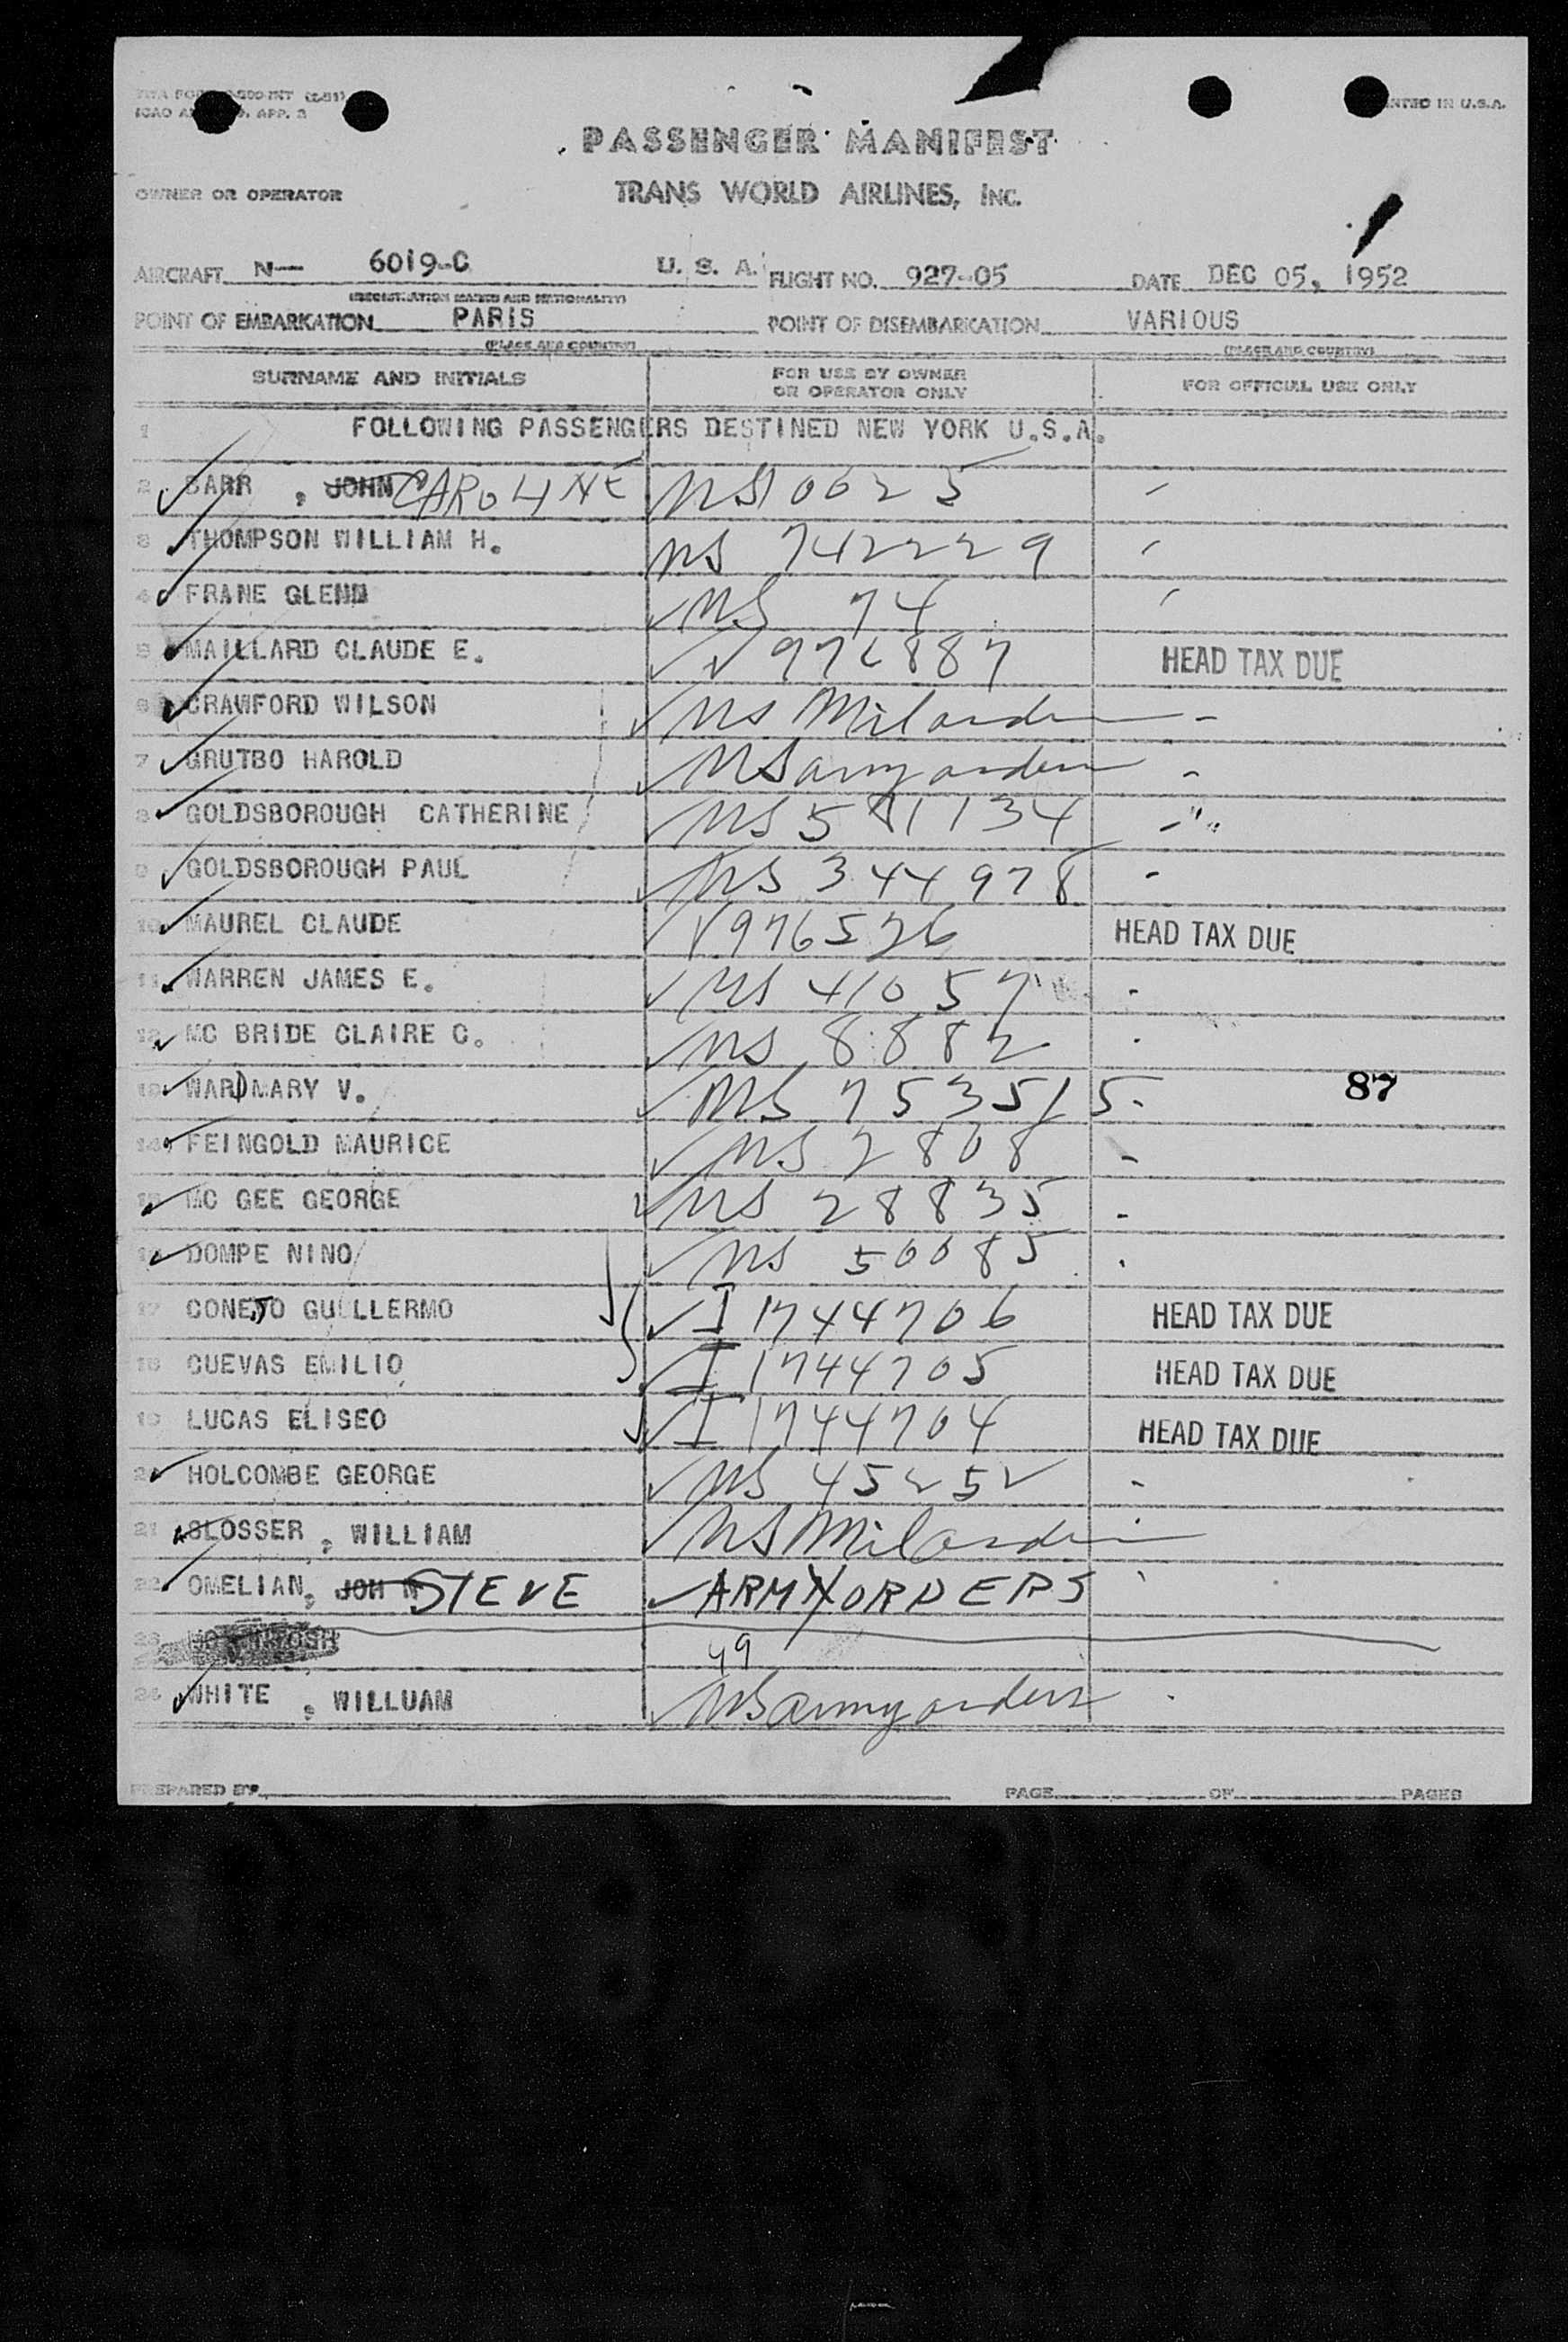 PASSENGER MANIFEST
OWNER OR OPERATOR TRANS WORLD AIRLINES, INC.
AIRCRAFT N— 6019-C U. S. A. FLIGHT NO. 927-05 DATE DEC 05, 1952
(REGISTRATION MARKS AND NATIONALITY)
POINT OF EMBARKATION PARIS POINT OF DISEMBARKATION VARIOUS
(PLACE AND COUNTRY) (PLACE AND COUNTRY)
SURNAME AND INITIALS FOR USE BY OWNER OR OPERATOR ONLY FOR OFFICIAL USE ONLY
1 FOLLOWING PASSENGERS DESTINED NEW YORK U.S.A.
2 SARR , JOHN CAROLINE
3 THOMPSON WILLIAM H. US 742229
4 FRANE GLENN US 74
5 MAILLARD CLAUDE E. V 976887 HEAD TAX DUE
6 CRAWFORD WILSON US Mil orders
7 GRUTBO HAROLD US army orders
8 GOLDSBOROUGH CATHERINE
9 GOLDSBOROUGH PAUL US 344978
10 MAUREL CLAUDE V 976526 HEAD TAX DUE
11 WARREN JAMES E. US 41057
12 MC BRIDE CLAIRE C. US 8882
13 WARD MARY V. US 753515 87
14 FEINGOLD MAURICE US 2808
15 MC GEE GEORGE US 28835
16 DOMPE NINO US 50085
17 CONEJO GUILLERMO I 1744706 HEAD TAX DUE
18 CUEVAS EMILIO I 1744705 HEAD TAX DUE
19 LUCAS ELISEO I 1744704 HEAD TAX DUE
20 HOLCOMBE GEORGE US 45252
21 SLOSSER , WILLIAM US Mil orders
22 OMELIAN, JOHN STEVE ARMY ORDERS
23
49
24 WHITE , WILLUAM US army orders
PREPARED BY PAGE OF PAGES